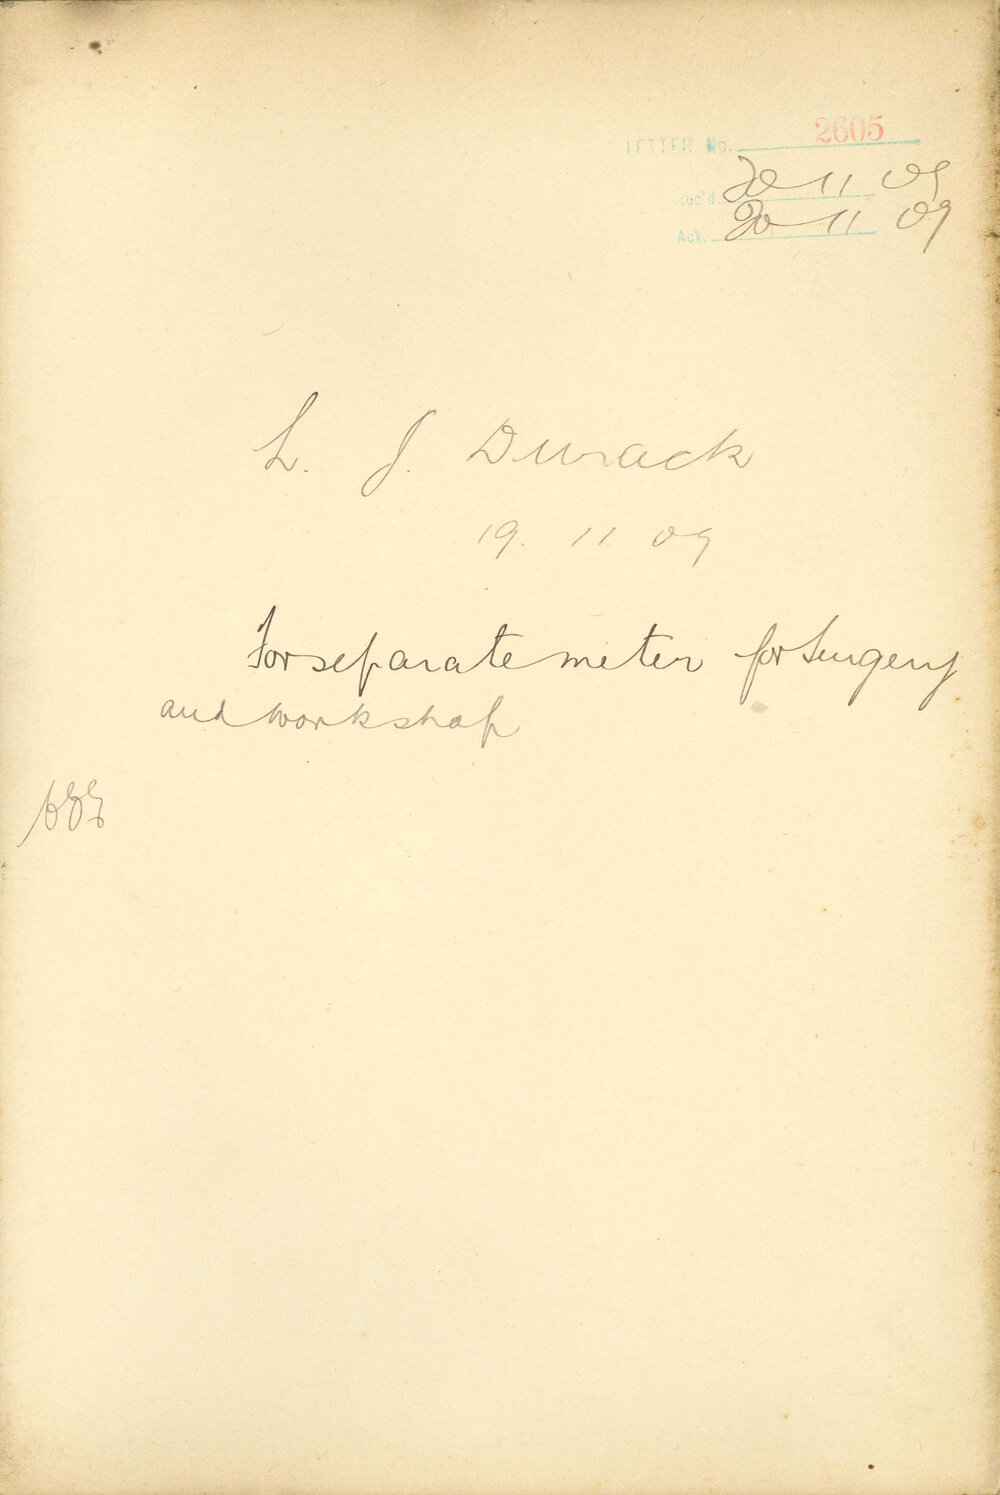 LETTER No. 2605
Rec'd. 20 11 09
Ack. 20 11 09
L. J. Durack
19. 11. 09
For separate meter for Surgery
and workshop